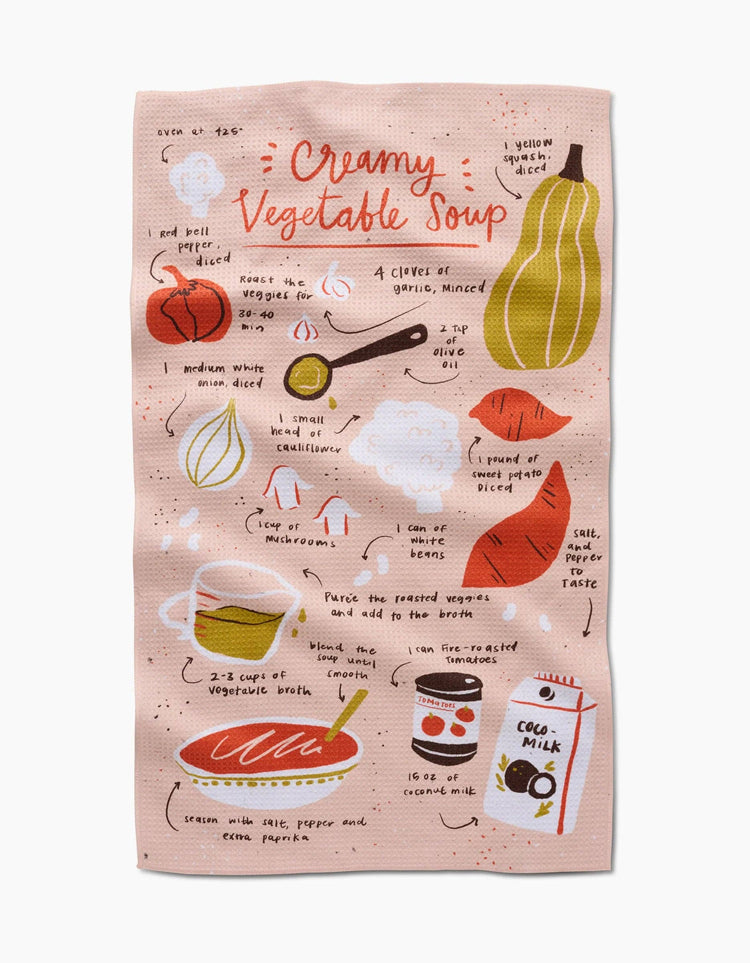 oven at 425°
Creamy
Vegetable Soup
1 yellow
squash,
diced
1 Red bell
pepper,
diced
Roast the
veggies for
30-40
min
4 cloves of
garlic, minced
2 Tsp
of
olive
oil
1 medium white
onion, diced
1 small
head of
cauliflower
1 pound of
sweet potato
Diced
1 cup of
Mushrooms
1 can of
white
beans
salt,
and
pepper
to
Taste
Purée the roasted veggies
and add to the broth
2-3 cups of
vegetable broth
blend the
soup until
smooth
1 can Fire-roasted
Tomatoes
TOMATOES
COCO-
MILK
15 oz of
coconut milk
season with salt, pepper and
extra paprika